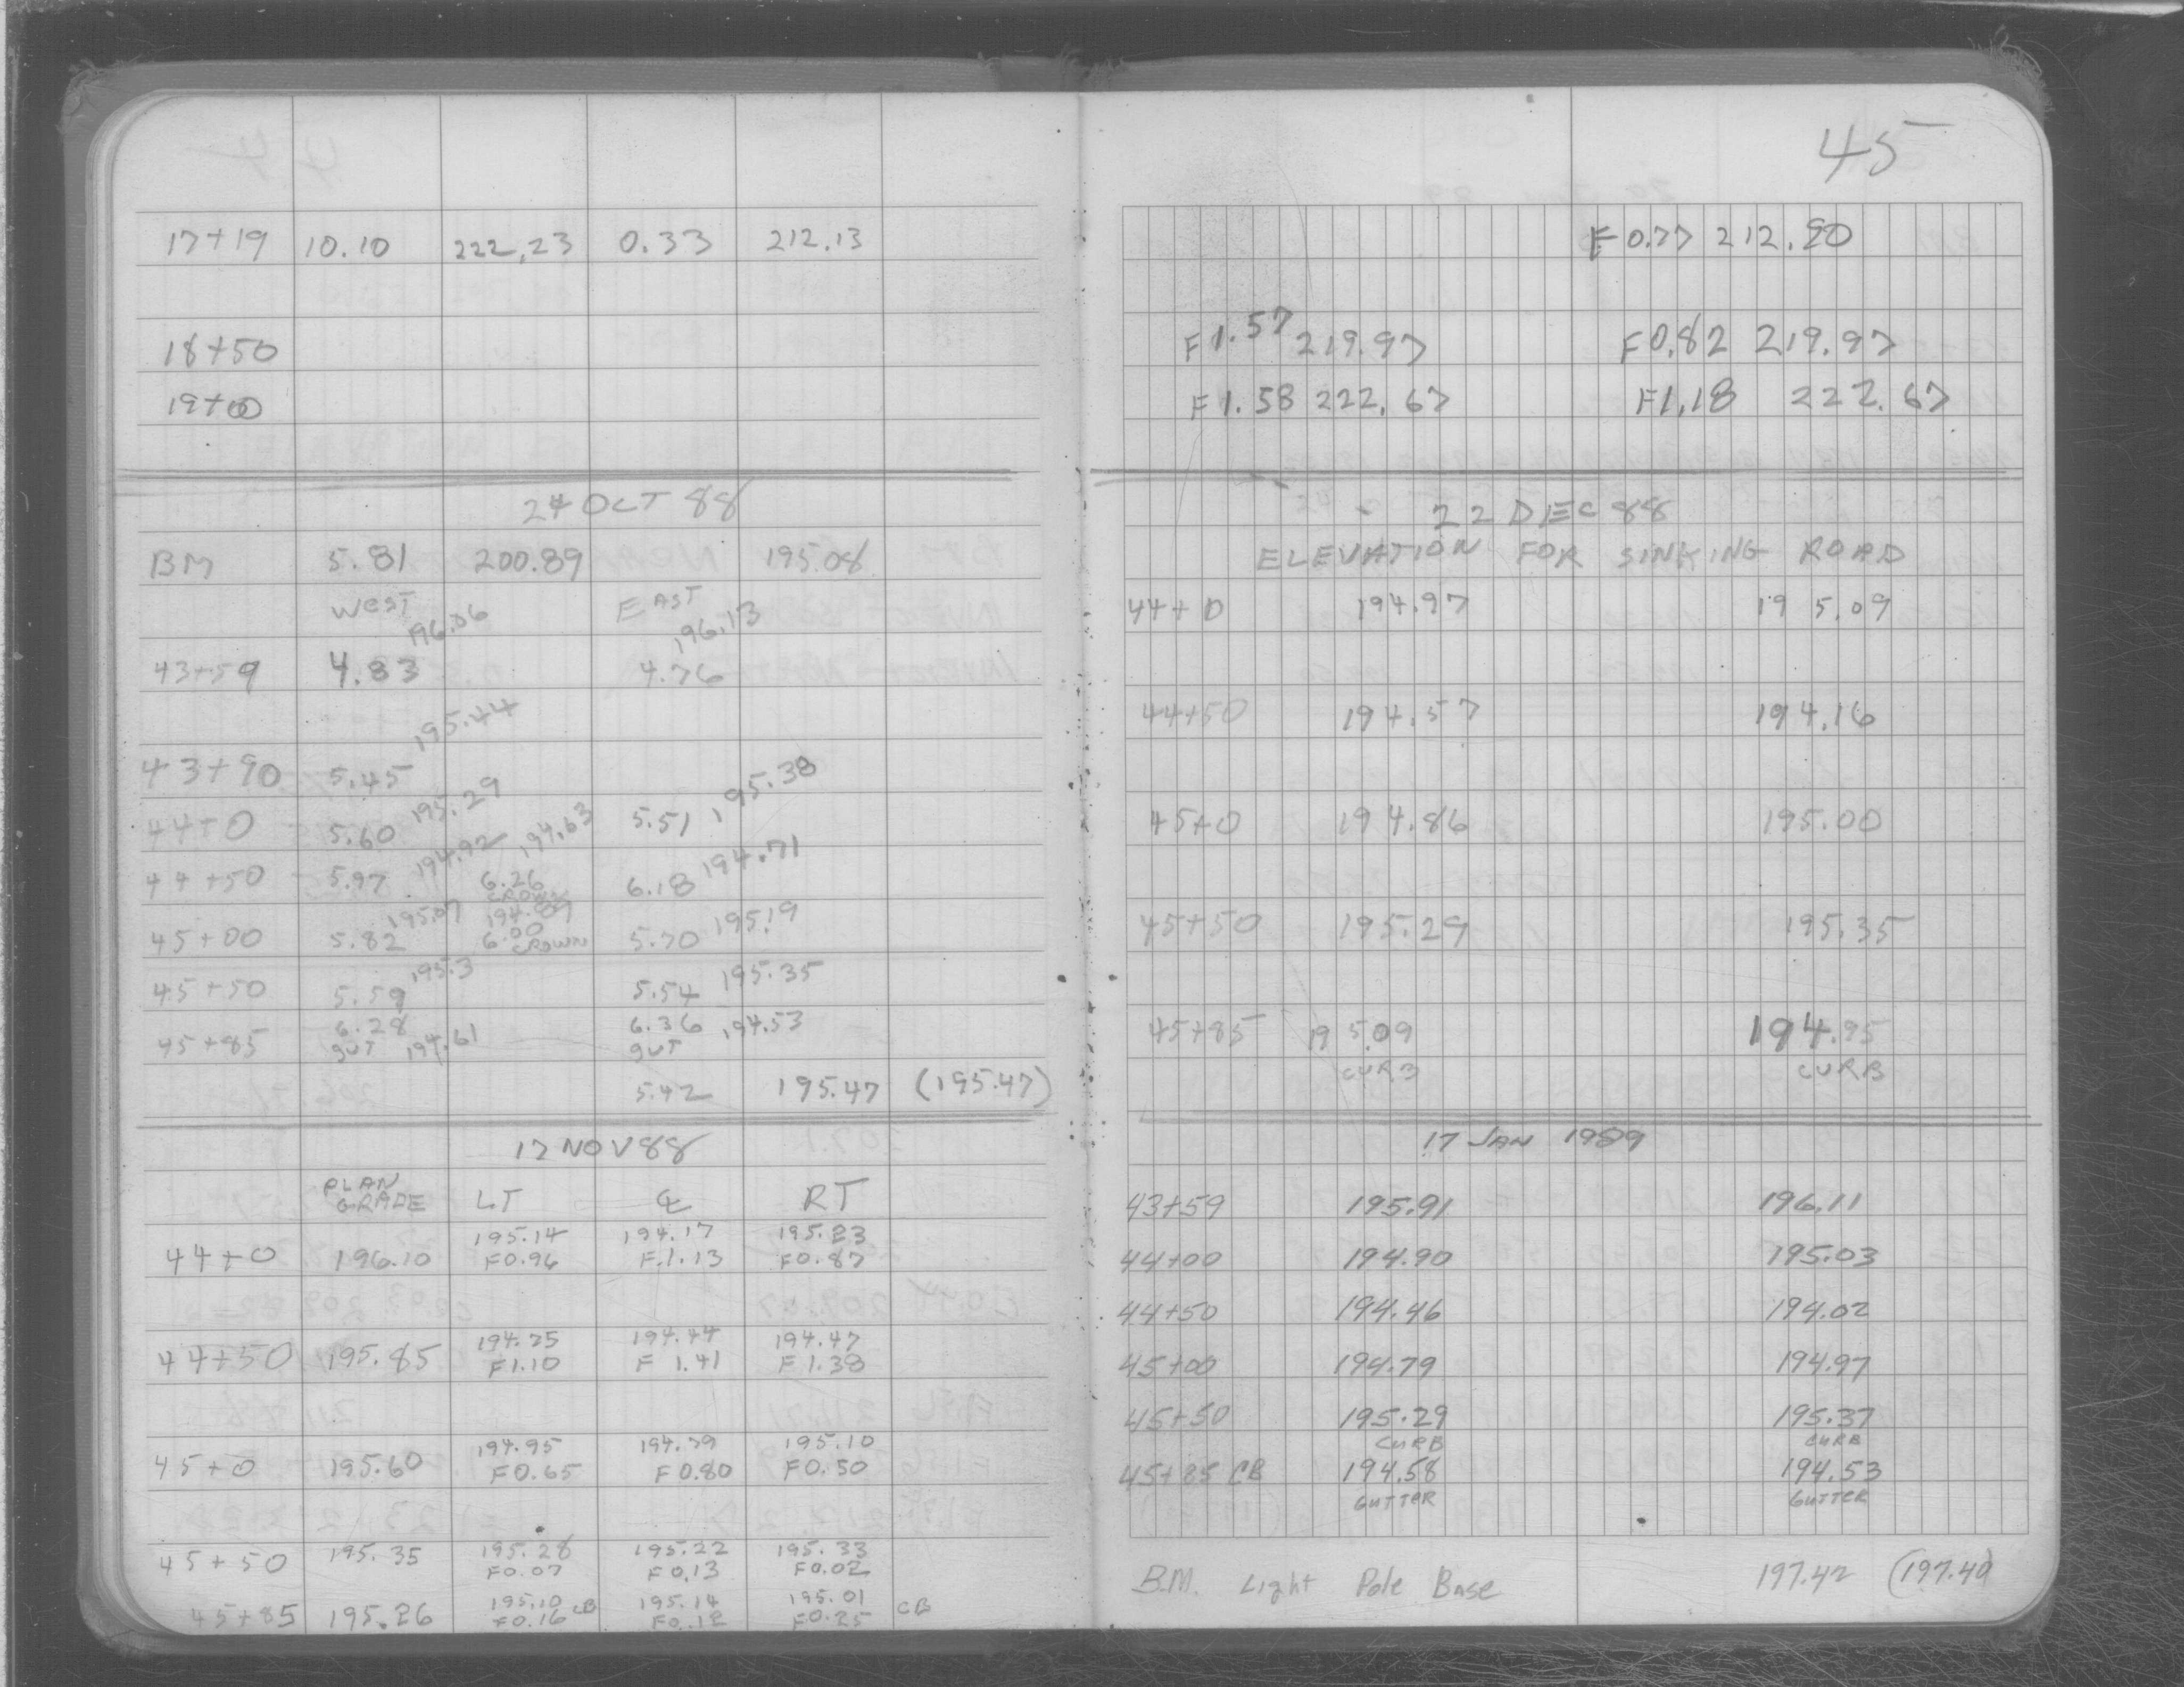 17+19 10.10 222.23 0.33 212.13
18+50
19+00
24 OCT 88
BM 5.81 200.89 195.08
WEST EAST
196.06 196.13
43+59 4.83 4.76
195.44
43+90 5.45
195.29 195.38
44+0 5.60 5.51
194.92 194.63 194.71
44+50 5.97 6.26 6.18
CROWN
195.07 194.89 195.19
45+00 5.82 6.00 5.70
CROWN
195.3 195.35
45+50 5.59 5.54
6.28 6.36 194.53
45+85 GUT 194.61 GUT
5.42 195.47 (195.47)
17 NOV 88
PLAN
GRADE LT ℄ RT
195.14 194.17 195.23
44+0 196.10 F0.96 F.1.13 F0.87
194.75 194.44 194.47
44+50 195.85 F1.10 F 1.41 F 1.38
194.95 194.79 195.10
45+0 195.60 F0.65 F0.80 F0.50
45+50 195.35 195.28 195.22 195.33
F0.07 F0.13 F0.02
195.10 CB 195.14 195.01
45+85 195.26 F0.16 F0.12 F0.25 CB
45
F 0.77 212.90
F 1.57 219.97 F0.82 219.97
F 1.58 222.67 F1.18 222.67
22 DEC 88
ELEVATION FOR SINKING ROAD
44+0 194.97 195.09
44+50 194.57 194.16
45+0 194.86 195.00
45+50 195.29 195.35
45+85 195.09 194.95
CURB CURB
17 JAN 1989
43+59 195.91 196.11
44+00 194.90 195.03
44+50 194.46 194.02
45+00 194.79 194.97
45+50 195.29 195.37
CURB CURB
45+85 CB 194.58 194.53
GUTTER GUTTER
B.M. Light Pole Base 197.42 (197.40)